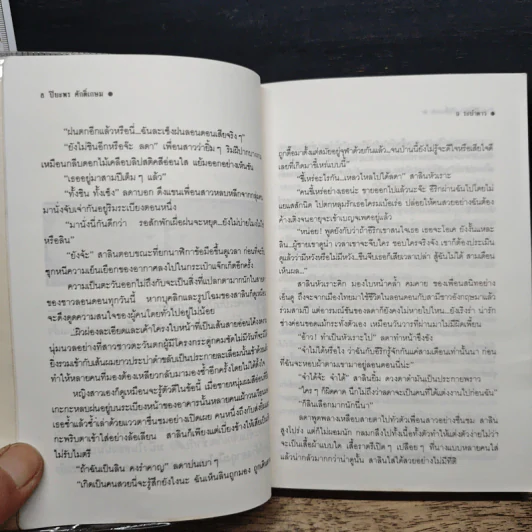 ๘ ปิยะพร ศักดิ์เกษม ●
“ฝนตกอีกแล้วหรือนี่...ฉันละเซ็งฝนลอนดอนเสียจริงๆ”
“ยังไม่ชินอีกหรือจ๊ะ ลดา” เพื่อนสาวว่ายิ้มๆ ริมฝีปากบาง
เหมือนกลีบดอกไม้เคลือบลิปสติคสีอ่อนใส แย้มออกอย่างเห็นขัน
“เธออยู่มาสามปีเต็มๆ แล้ว”
“ทั้งชิน ทั้งเซ็ง” ลดาบอก ดึงแขนเพื่อนสาวหลบหลีกจากกลุ่มคน
มานั่งจับเจ่ากันอยู่ริมระเบียงตอนหนึ่ง
“มานั่งนี่กันดีกว่า รอสักพักเผื่อฝนจะหยุด...ยังไม่บ่ายโมง
หรือลิน”
“ยังจ้ะ” สาลินตอบขณะที่ยกนาฬิกาข้อมือขึ้นดูเวลา ก่อนที่จะ
ซุกหนีความเย็นเยือกของอากาศลงไปในกระเป๋าแจ๊กเก็ตอีกครั้ง
ความเป็นตะวันออกไม่ถึงกับจะเป็นสิ่งที่แปลกตามากนักในสายตา
ของชาวลอนดอนทุกวันนี้ หากบุคลิกและรูปโฉมของสาลินก็ดูเหมือน
จะดึงดูดความสนใจของผู้คนโดยทั่วไปอยู่ไม่น้อย
...ผิวผ่องละเอียดและเค้าโครงใบหน้าที่เป็นเส้นสายอ่อนโค้งงดงาม
นุ่มนวลอย่างที่สาวชาวตะวันตกผู้มีโครงกระดูกคมชัดไม่มีวันที่จะมี
ยิ่งรวมเข้ากับเส้นผมยาวประบ่าดำขลับเป็นประกายละเลื่อมนั้นเข้าด้วยแล้ว
ทำให้หลายคนที่มองต้องเหลียวกลับมามองซ้ำอีกครั้งโดยไม่ได้ตั้งใจ
หญิงสาวเองก็ดูเหมือนจะรู้ตัวดีในข้อนี้ เมื่อชายหนุ่มผมสีอ่อนที่
เกะกะไหลบ่นอยู่บนระเบียงหน้าของอาคารนั้นหลายคนแล้ววนเวียน
เธอซ้ำแล้วซ้ำเล่าด้วยแววตาชื่นชมอย่างเปิดเผย คนหนึ่งถึงกับส่งยิ้ม
กะพริบตาเข้าใส่อย่างล้อเลียน สาลินก็เพียงแต่เบี่ยงข้างให้เสียเป็น
ไม่รับไมตรี
“ถ้าฉันเป็นลิน คงรำคาญ” ลดาบ่นเบาๆ
“เกิดเป็นคนสวยนี่จะรู้สึกยังไงนะ ฉันเห็นลินถูกมอง
๙ ระบำดาว ●
ถูกตื๊อมาตั้งแต่สมัยอยู่จุฬาด้วยกันแล้ว...จนป่านนี้ยังไม่รู้จะดีใจหรือเสียใจดี
เลยที่เกิดมาขี้เหร่แบบนี้”
“ขี้เหร่อะไรกัน...เหลวไหลไปได้ลดา” สาลินหัวเราะ
“คนขี้เหร่อย่างเธอน่ะ ชายออกไปแล้วนะจ๊ะ อีรีกผ่านฉันไปโดยไม่
แยแสสักนิด ไปตกหลุมรักเธอโครมเบ้อเร่อ ปล่อยให้คนสวยอย่างฉันต้อง
ค้างเติ่งจนอายุจะเข้าเบญจเพศอยู่แล้ว”
“หน่อย! พูดยังกับว่าถ้าอีรีกเขาสนใจเธอ เธอจะโอเค ยังงั้นแหละ
ลิน...ผู้ชายเขาดูน่า เวลาเขาจะจีบใคร ชอบใครจริงจัง เขาก็ต้องประเมิน
ดูแล้วว่ามีหวังหรือไม่มีหวัง...ขืนจีบเธอก็เสียเวลาเปล่า สู้ฉันไม่ได้ สามเดือน
เห็นผล...”
สาลินหัวเราะคิก มองใบหน้าคล้ำ คมคาย ของเพื่อนสนิทอย่าง
เอ็นดู ถึงจะจากเมืองไทยมาใช้ชีวิตในลอนดอนกับสามีชาวอังกฤษมาแล้ว
ร่วมสามปี แต่อารมณ์ขันของลดาก็ยังคงไม่หายไปไหน...ยังเริงร่า น่ารัก
ช่างค่อนขอดแม้กระทั่งตัวเอง เหมือนวันวารที่ผ่านมาไม่มีผิดเพี้ยน
“อ้าว! ทำเป็นหัวเราะไป” ลดาทำหน้าขึงขัง
“จำไม่ได้หรือไง ว่าฉันกับอีรีกรู้จักกันแค่สามเดือนเท่านั้นนา ก่อน
ที่ฉันจะหอบผ้าตามเขามาอยู่ลอนดอนนี่น่ะ”
“จำได้จ้ะ จำได้” สาลินยิ้ม ดวงตาดำขลับเป็นประกายพราว
“ใครๆ ก็ผิดคาด นึกไม่ถึงว่าลดาจะเป็นคนที่ได้แต่งงานไปก่อนฉัน”
“ก็ลินเลือกมากนักนี่นา”
ลดาพูดพลางเหลือบสายตาไปทั่วตัวเพื่อนสาวอย่างชื่นชม สาลิน
สูงโปร่ง แต่ก็ไม่ผอมนัก กลมกลึงไปทั้งเนื้อทั้งตัวทำให้แต่งตัวง่ายไม่ว่า
จะเป็นเสื้อผ้าแบบใด เสื้อราตรีเปิดๆ เปลือยๆ ที่นางแบบหลายคนใส่
แล้วน่ากลัวมากกว่าน่าดูนั้น สาลินใส่ได้สวยอย่างไม่มีที่ติ